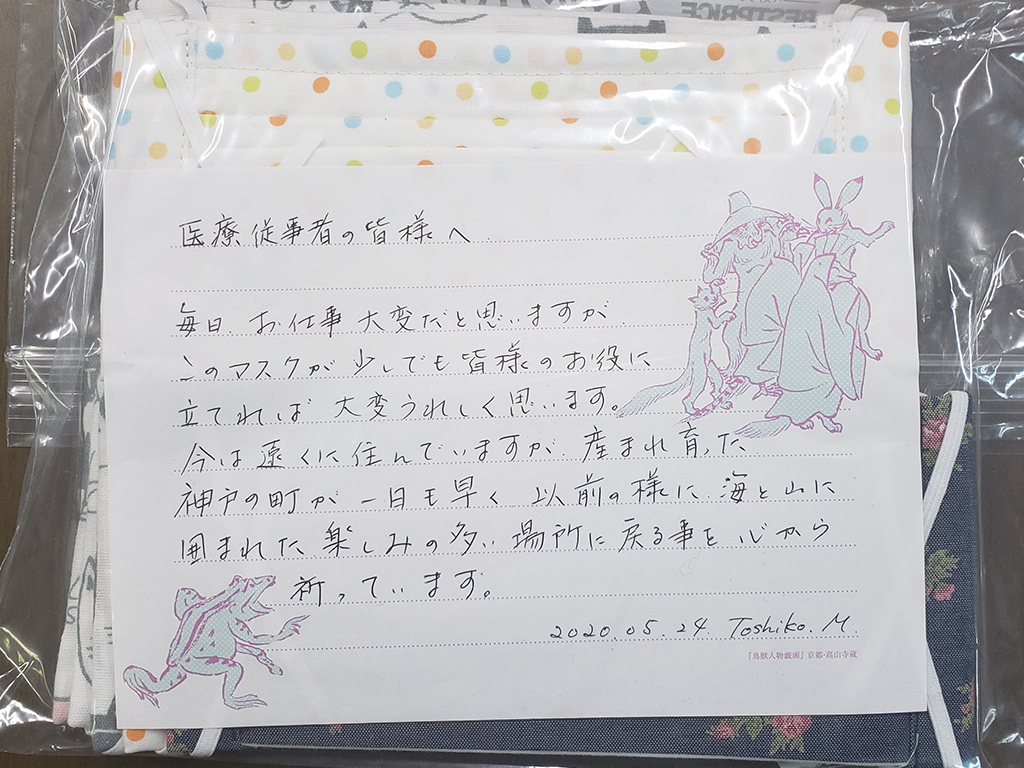 BESTPRICE
医療従事者の皆様へ
毎日、お仕事大変だと思いますが、
このマスクが少しでも皆様のお役に
立てれば大変うれしく思います。
今は遠くに住んでいますが、産まれ育った
神戸の町が一日も早く以前の様に、海と山に
囲まれた楽しみの多い場所に戻る事を心から
祈っています。
2020.05.24. Toshiko.M.
「鳥獣人物戯画」京都・高山寺蔵